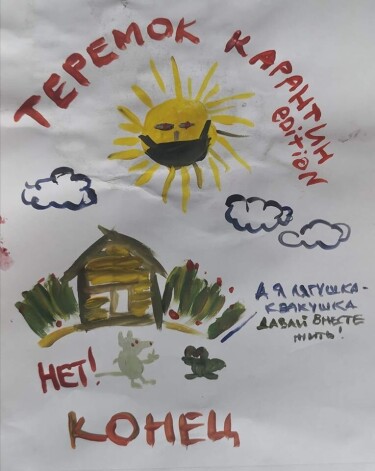 ТЕРЕМОК КАРАНТИН
edition
А Я ЛЯГУШКА-
КВАКУШКА
ДАВАЙ ВМЕСТЕ
ЖИТЬ!
НЕТ!
КОНЕЦ